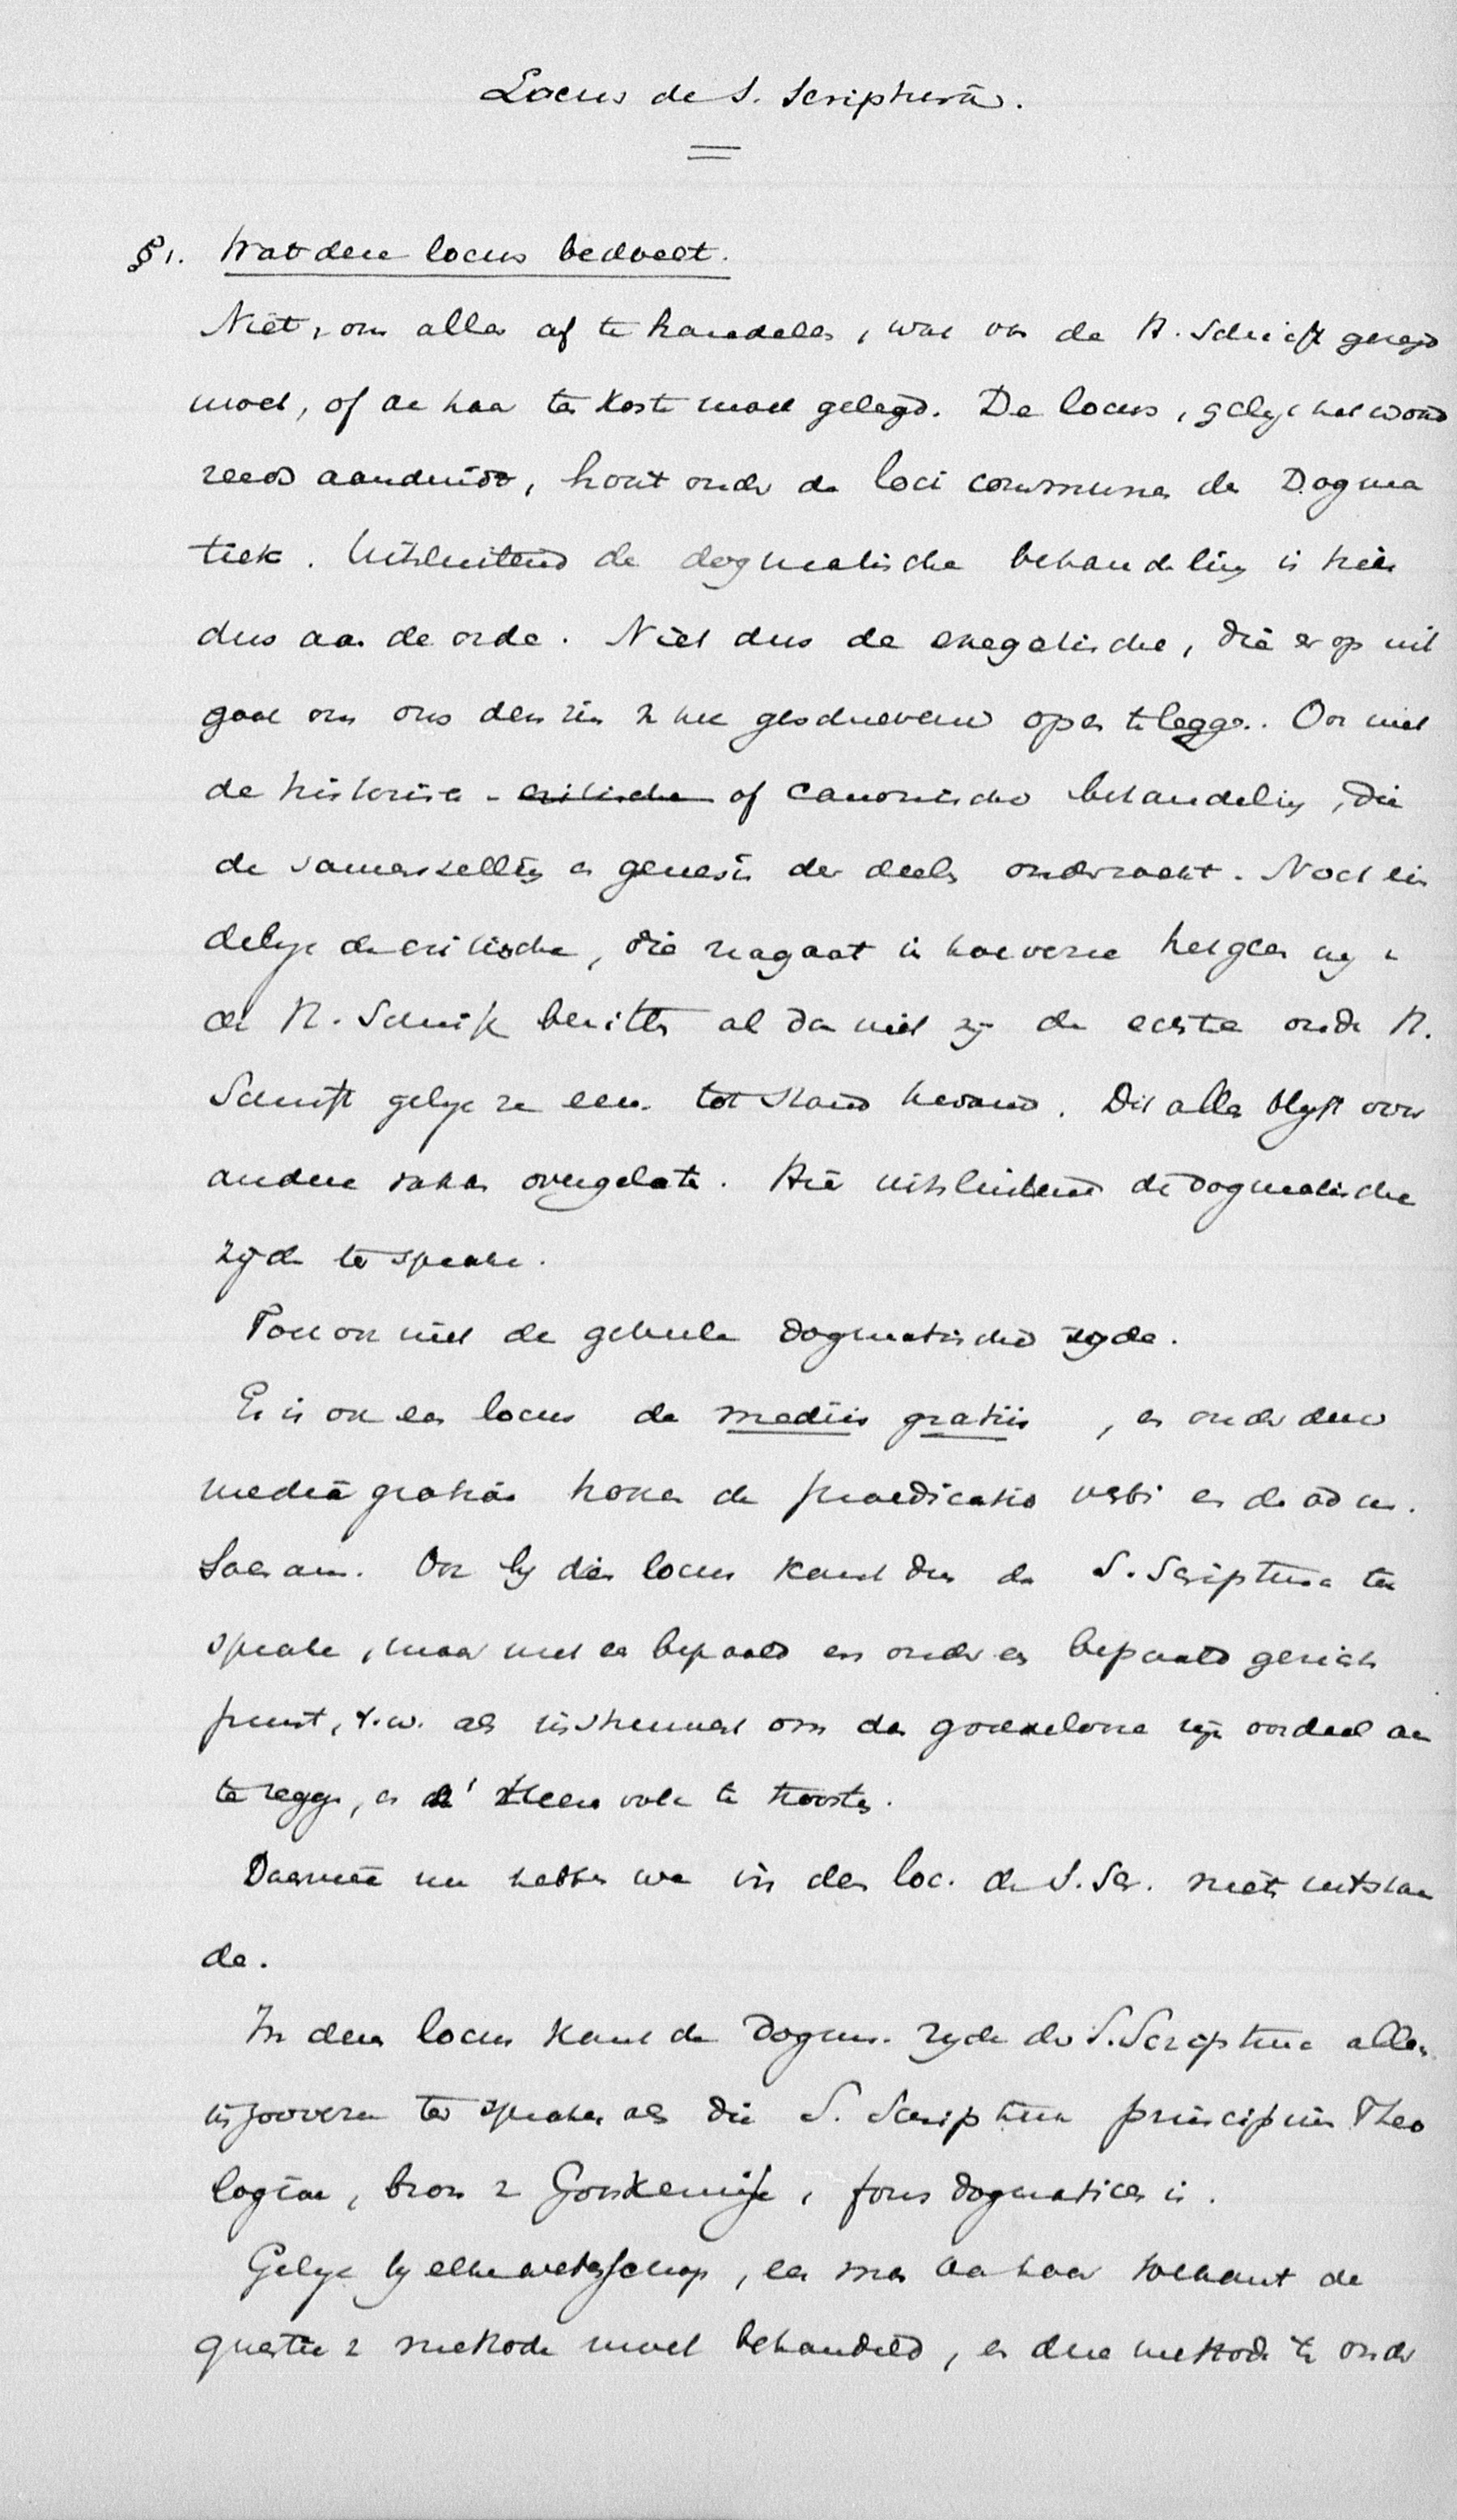 Locus de S. Scripturâ.
§ 1. Wat deze locus bedoelt.
Niet, om alles af te handelen, wat van de H. Schrift gezegd
moet, of aan haar ten koste moet gelegd. De locus, gelijk het woord
reeds aanduidt, hoort onder de loci communes der Dogma
tiek. Uitsluitend de dogmatische behandeling is hier
dus aan de orde. Niet dus de exegetische, die er op uit
gaat om ons den zin v. het geschrevene open te leggen. Ook niet
de historisch - critische of canonische behandeling, die
de samenstelling en genesis der deelen onderzoekt. Noch ein
delijk de critische, die nagaat in hoeverre hetgeen wij in
de H. Schrift bezitten al dan niet zij de echte oude H.
Schrift gelijk ze eens tot stand kwam. Dit alles blijft voor
andere vakken overgelaten. Hier uitsluitend de dogmatische
zijde ter sprake.
Toch ook niet de geheele dogmatische zijde.
Er is ook een locus de mediis gratiis, en onder deze
media gratiae hooren de praedicatio verbi en de adm.
Sacram. Ook bij dien locus komt dus de S. Scriptura ter
sprake, maar met een bepaald en onder een bepaald gezichts
punt, t.w. als instrument om den goddelooze zijn oordeel aan
te zeggen, en 's Heeren volk te troosten.
Daarmeê nu hebben we in den loc. de S. Scr. niets uitstaan
de.
In dezen locus komt de Dogm. zijde der S. Scriptura alleen
in zooverre ter sprake als die S. Scriptura principium Theo
logiae, bron v. Godskennisse, fons dogmatices is.
Gelijk bij elke wetenschap, eer men aan haar toekomt de
quaestie v. methode moet behandeld, en deze methode te onder